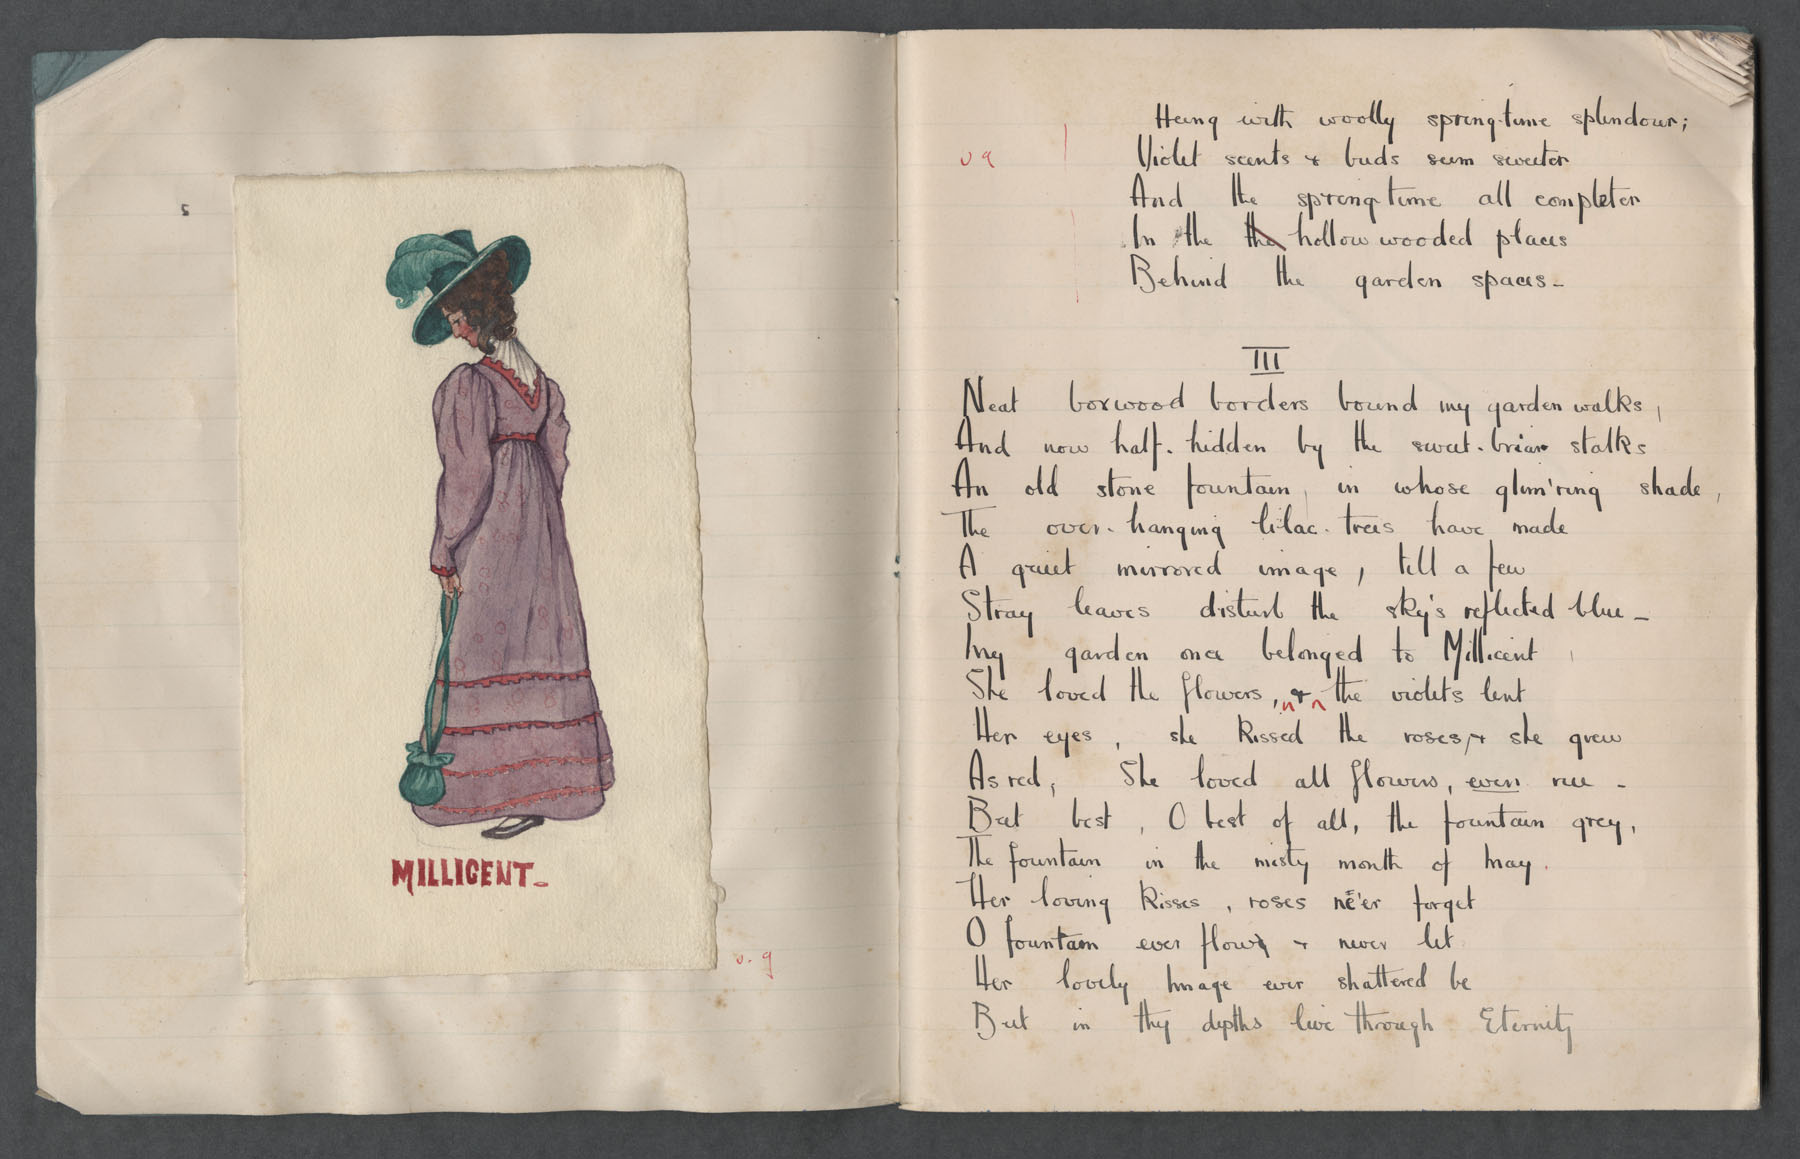 MILLICENT_
v. g
Hung with woolly spring-time splendour;
v g
Violet scents & buds seem sweeter
And the spring-time all completer
In the the hollow wooded places
Behind the garden spaces_
III
Neat boxwood borders bound my garden walks,
And now half-hidden by the sweet-briar stalks
An old stone fountain, in whose glim'ring shade,
The over-hanging lilac-trees have made
A quiet mirrored image, till a few
Stray leaves disturb the sky's reflected blue_
My garden once belonged to Millicent,
She loved the flowers, & the violets lent
Her eyes, she kissed the roses, & she grew
As red; She loved all flowers, even rue -
But best, O best of all, the fountain grey,
The fountain in the misty month of May.
Her loving kisses, roses ne'er forget
O fountain ever flow & never let
Her lovely Image ever shattered be
But in thy depths live through Eternity